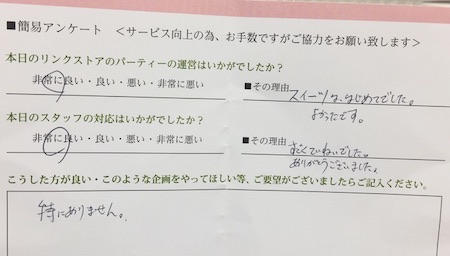 ■簡易アンケート ＜サービス向上の為、お手数ですがご協力をお願い致します＞
本日のリンクストアのパーティーの運営はいかがでしたか？
非常に良い・良い・悪い・非常に悪い
■その理由 スイーツは、はじめてでした。
よかったです。
本日のスタッフの対応はいかがでしたか？
非常に良い・良い・悪い・非常に悪い
■その理由 すごくていねいでした。
ありがとうございました。
こうした方が良い・このような企画をやってほしい等、ご要望がございましたらご記入ください。
特にありません。